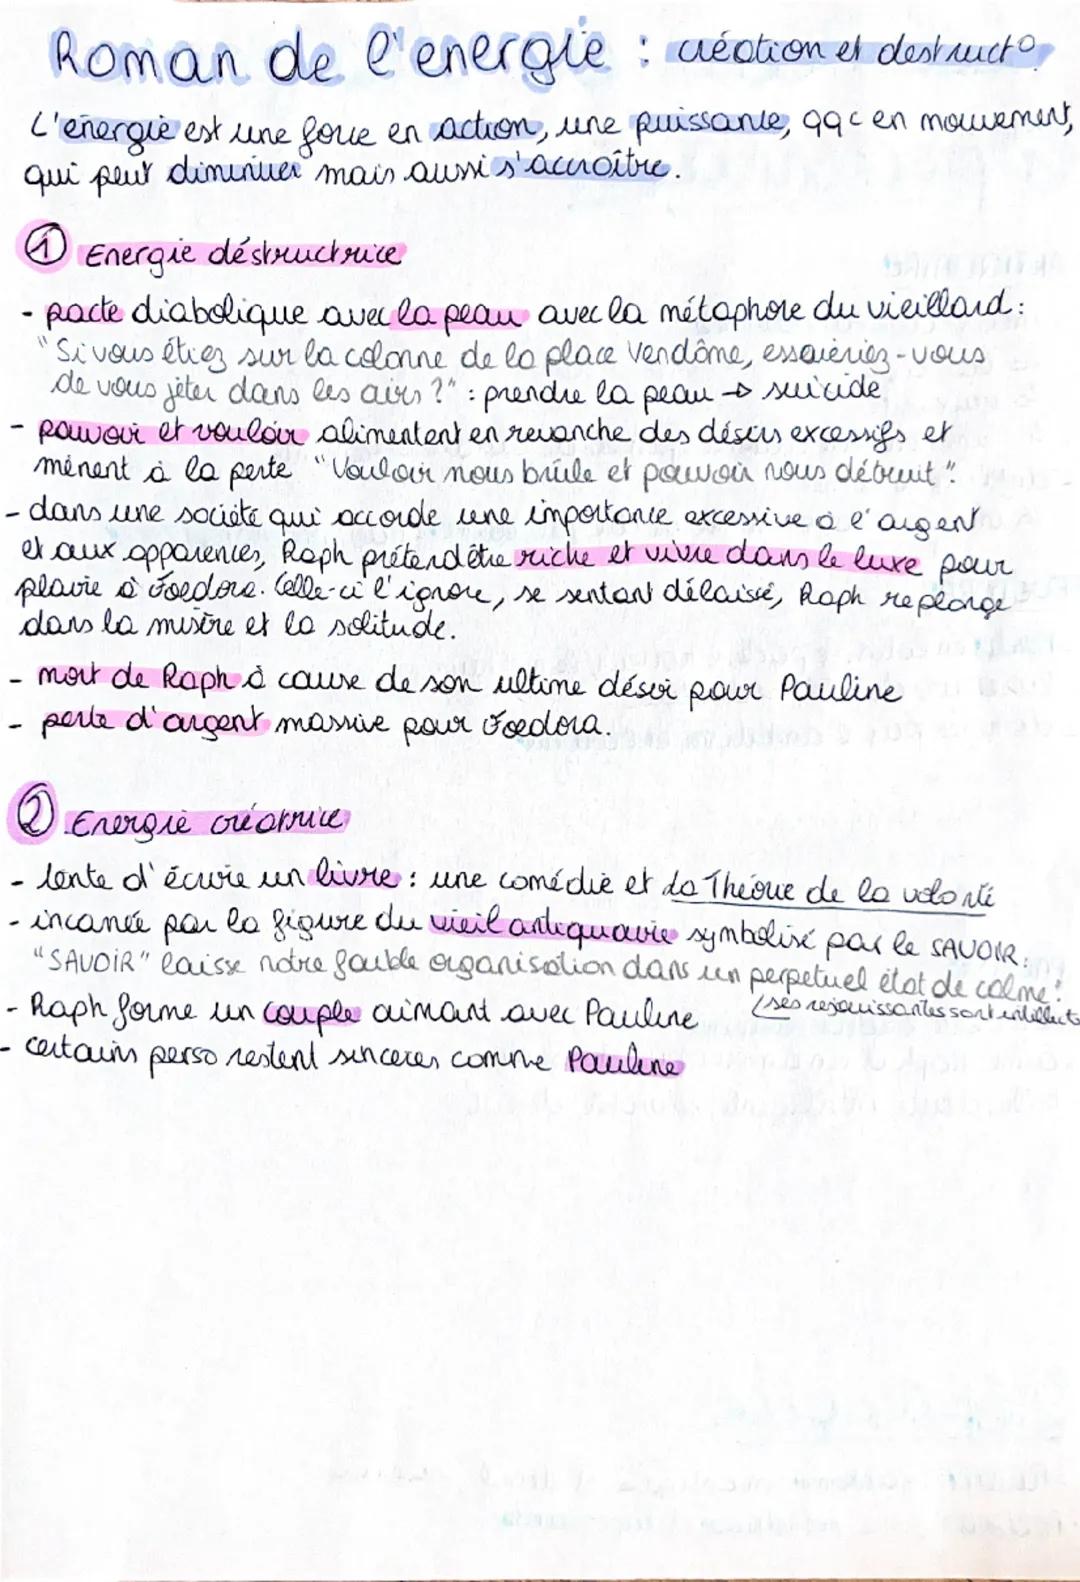 Roman de l'energie : création et destruct°
L'energie est une force en action, une puissante, qqc en mouvement,
qui peut diminuer mais aussi s'accroître.
① Energie déstructrice
- pacte diabolique avec la peau avec la métaphore du vieillard :
"Si vous étiez sur la colonne de la place Vendôme, essaieriez-vous
de vous jeter dans les airs ?" : prendre la peau → suicide
- pouvoir et vouloir alimentent en revanche des désirs excessifs et
mènent à la perte "Vouloir nous brûle et pouvoir nous détruit".
- dans une société qui accorde une importance excessive à l'argent
et aux apparences, Raph prétend être riche et vivre dans le luxe pour
plaire à Foedora. Celle-ci l'ignore, se sentant délaissé, Raph replonge
dans la misère et la solitude.
- mort de Raph à cause de son ultime désir pour Pauline
- perte d'argent massive pour Foedora.
② Energie créatrice
- tente d'écrire un livre : une comédie et La Théorie de la volonté
- incarnée par la figure du vieil antiquaire symbolisé par le SAVOIR :
"SAVOIR" laisse notre faible organisation dans un perpetuel état de calme"
- Raph forme un couple aimant avec Pauline
(ses rejouissantes sont intellects
- certains perso restent sinceres comme Pauline